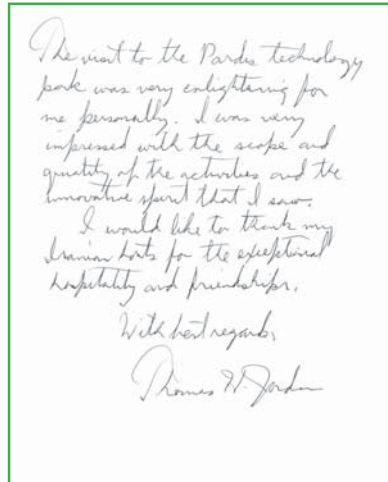 The visit to the Pardis technology
park was very enlightening for
me personally. I was very
impressed with the scope and
quality of the activities and the
innovative spirit that I saw.
I would like to thank my
Iranian hosts for the exceptional
hospitality and friendships.
With best regards,
Thomas W. Jordan